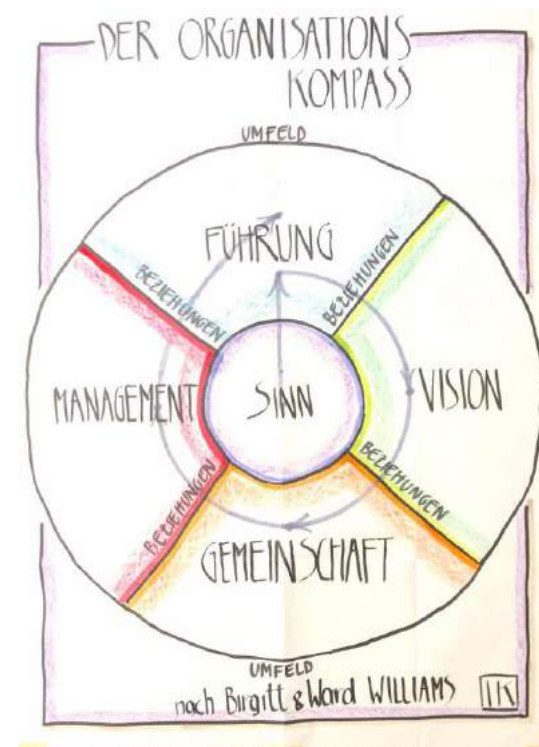 DER ORGANISATIONS
KOMPASS
UMFELD
FÜHRUNG
BEZIEHUNGEN
BEZIEHUNGEN
MANAGEMENT
SINN
VISION
BEZIEHUNGEN
BEZIEHUNGEN
GEMEINSCHAFT
UMFELD
nach Birgitt & Ward WILLIAMS